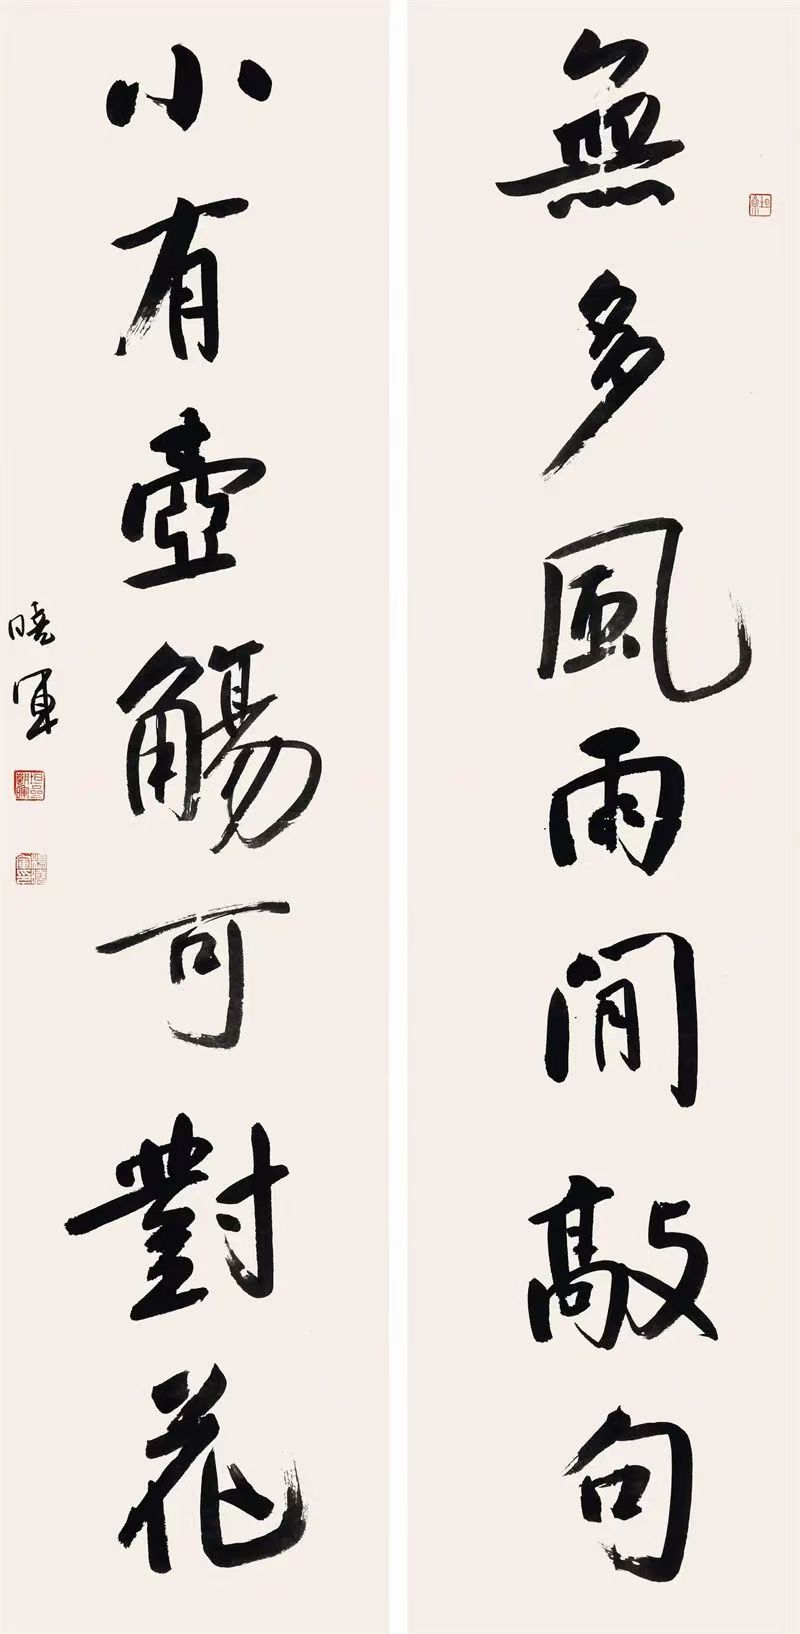 無多風雨閒敲句
小有壺觴可對花
曉軍